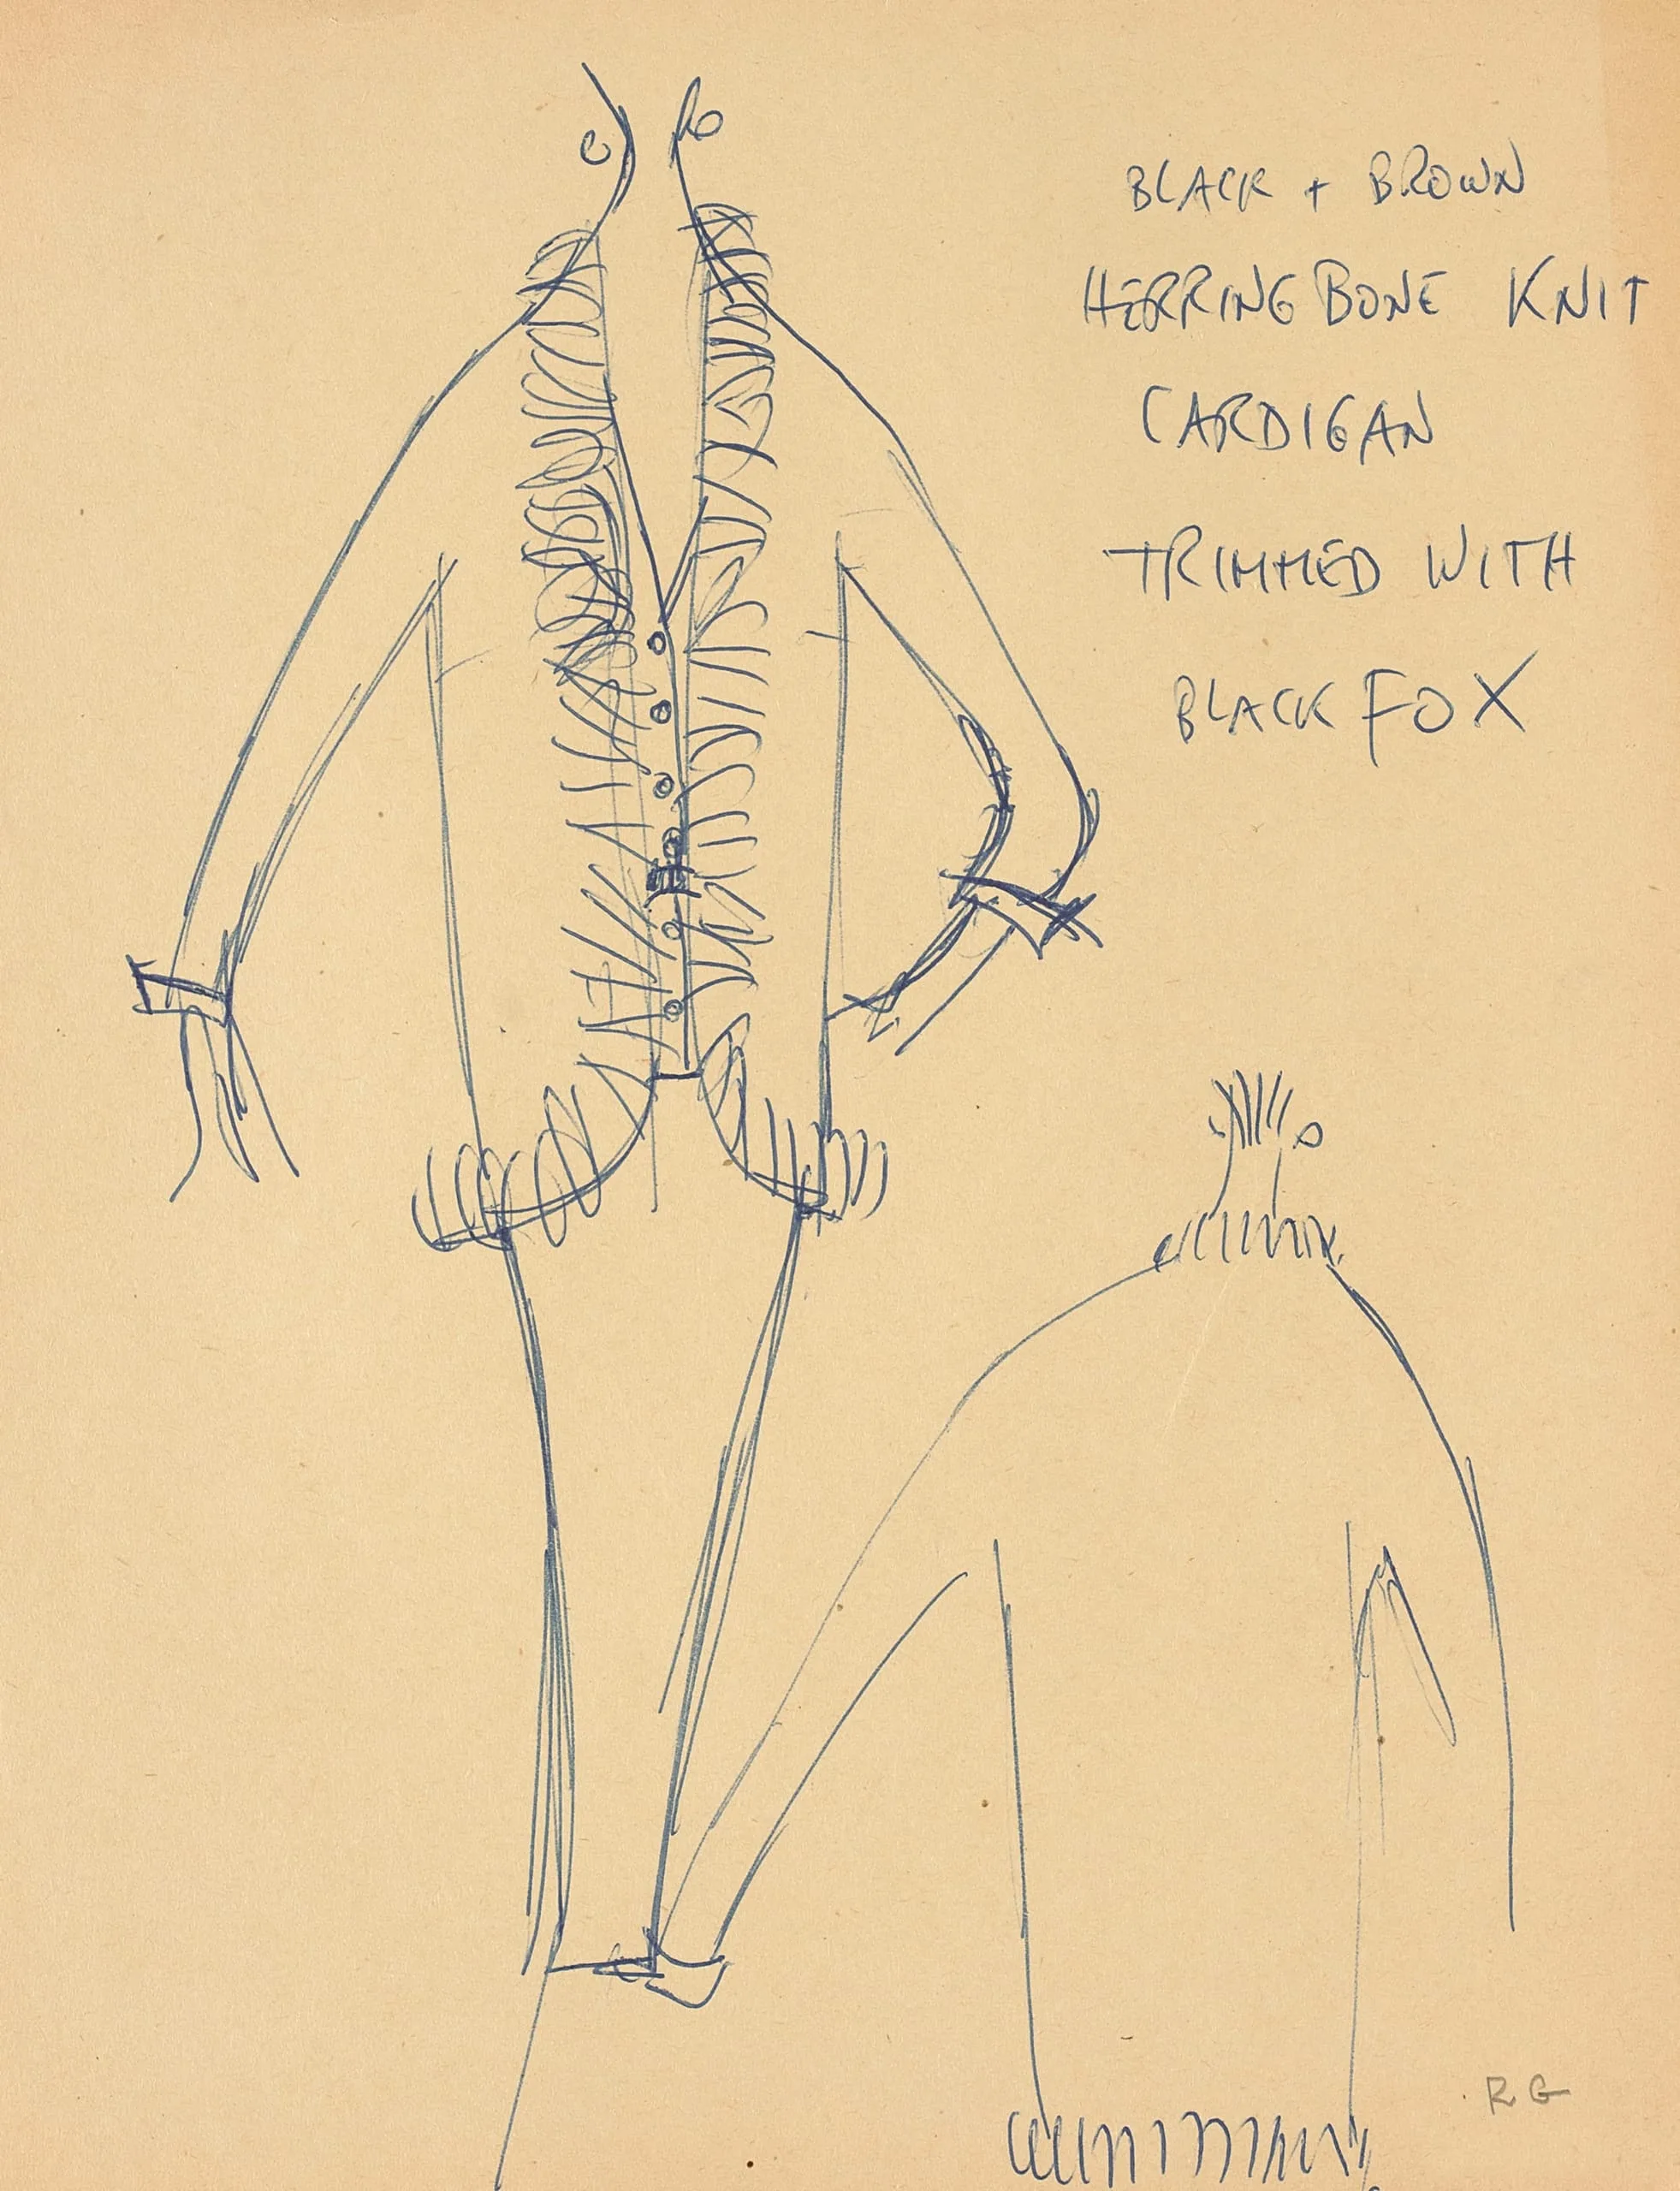 BLACK + BROWN
HERRINGBONE KNIT
CARDIGAN
TRIMMED WITH
BLACK FOX
RG